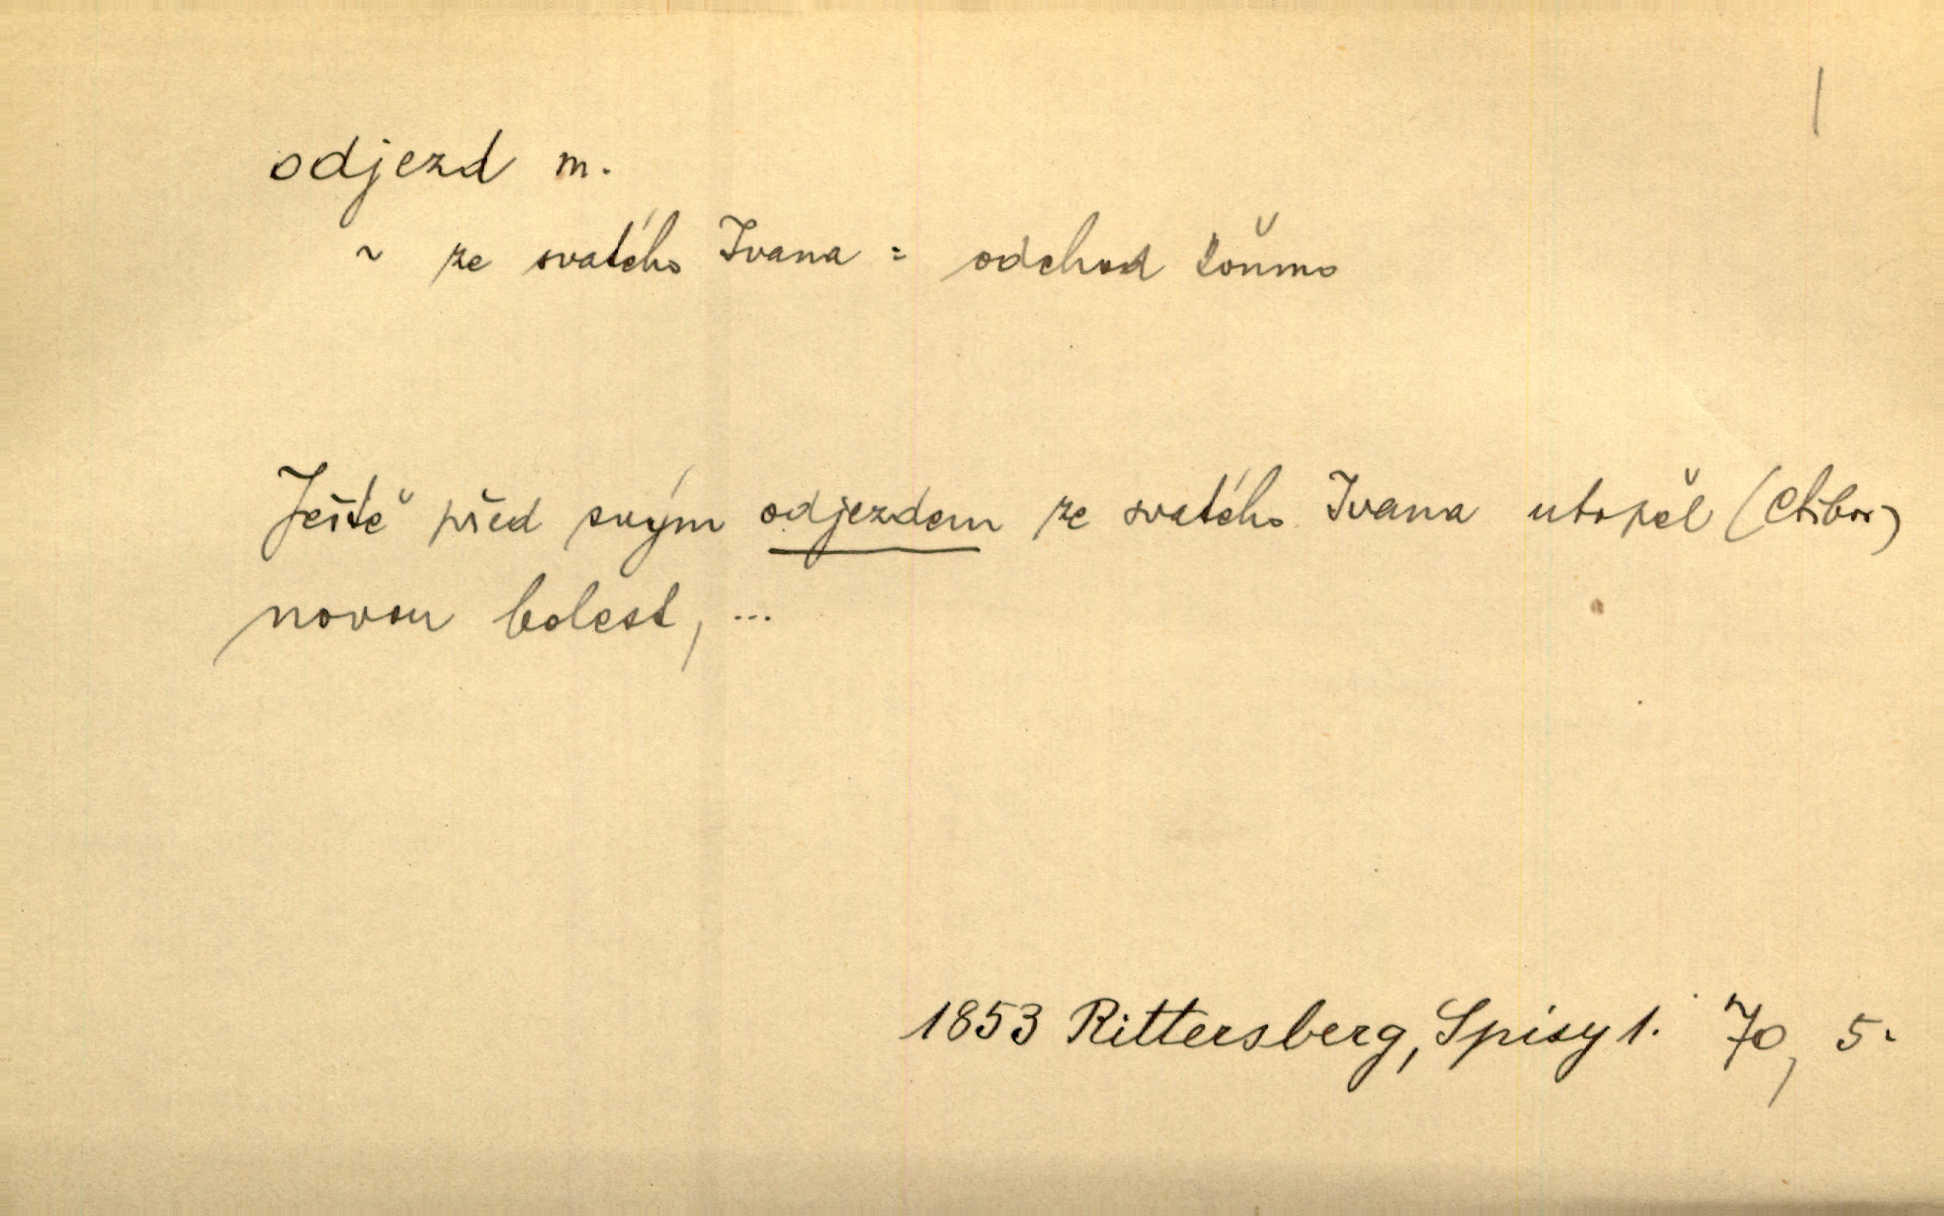 odjezd m.
~ ze svatého Ivana = odchod koňmo
Ještě před svým odjezdem ze svatého Ivana utopěl (Ctibor)
novou bolest, ...
1853 Rittersberg, Spisy 1. 70, 5.